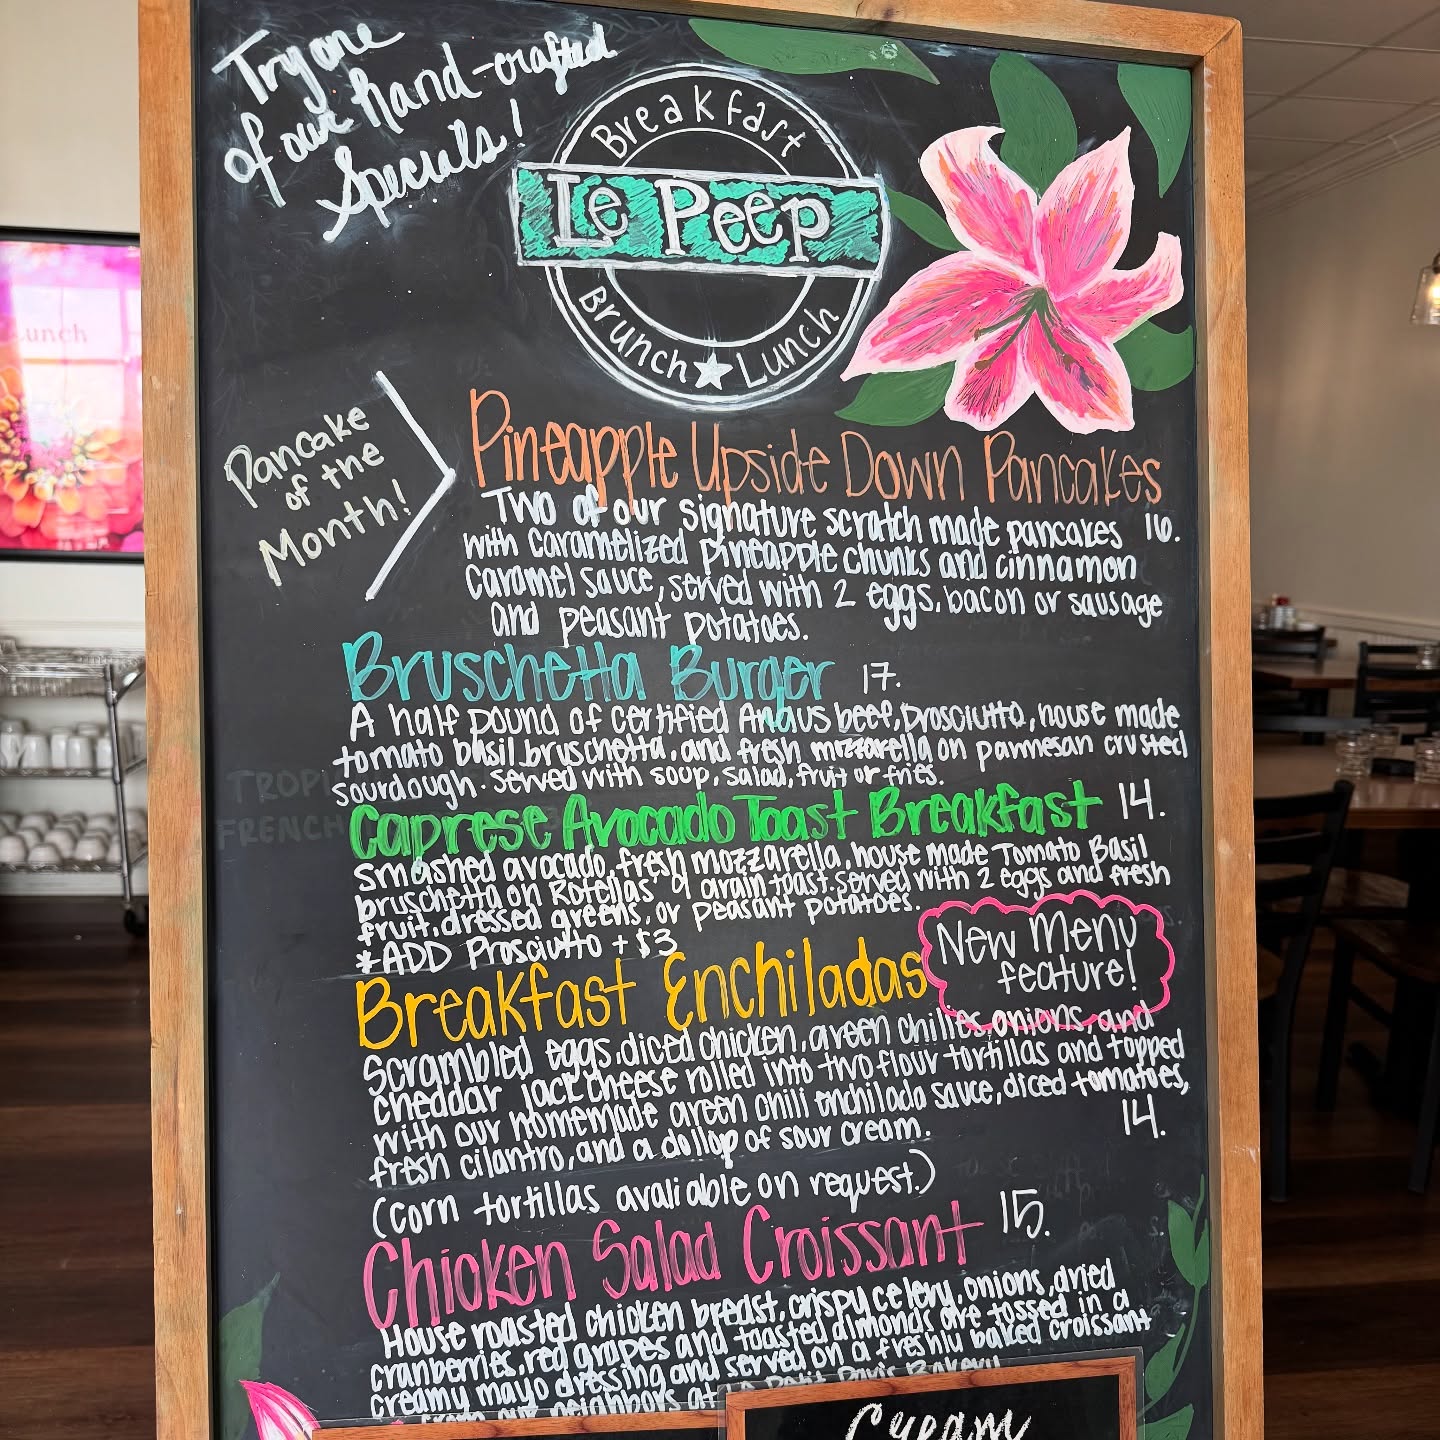 Try one
of our hand-crafted
Specials!
Breakfast
Le Peep
Brunch ★ Lunch
Lunch
Pancake
of the
Month!
Pineapple Upside Down Pancakes
Two of our signature scratch made pancakes 16.
with caramelized pineapple chunks and cinnamon
caramel sauce, served with 2 eggs, bacon or sausage
and peasant potatoes.
Bruschetta Burger 17.
A half pound of certified Angus beef, prosciutto, house made
tomato basil bruschetta, and fresh mozzarella on parmesan crusted
sourdough. served with soup, salad, fruit or fries.
FRENCH
Caprese Avocado Toast Breakfast 14.
smashed avocado, fresh mozzarella, house made Tomato Basil
bruschetta on Rotellas 9 grain toast. served with 2 eggs and fresh
fruit, dressed greens, or peasant potatoes.
*ADD Prosciutto + $3
New menu
feature!
Breakfast Enchiladas
Scrambled eggs, diced chicken, green chilies, onions, and
cheddar jack cheese rolled into two flour tortillas and topped
with our homemade green chili enchilada sauce, diced tomatoes,
fresh cilantro, and a dollop of sour cream. 14.
(corn tortillas avaliable on request.)
Chicken Salad Croissant 15.
House roasted chicken breast, crispy celery, onions, dried
cranberries, red grapes and toasted almonds are tossed in a
creamy mayo dressing and served on a freshly baked croissant
from our neighbors at Le Petit Paris Bakery
Cream